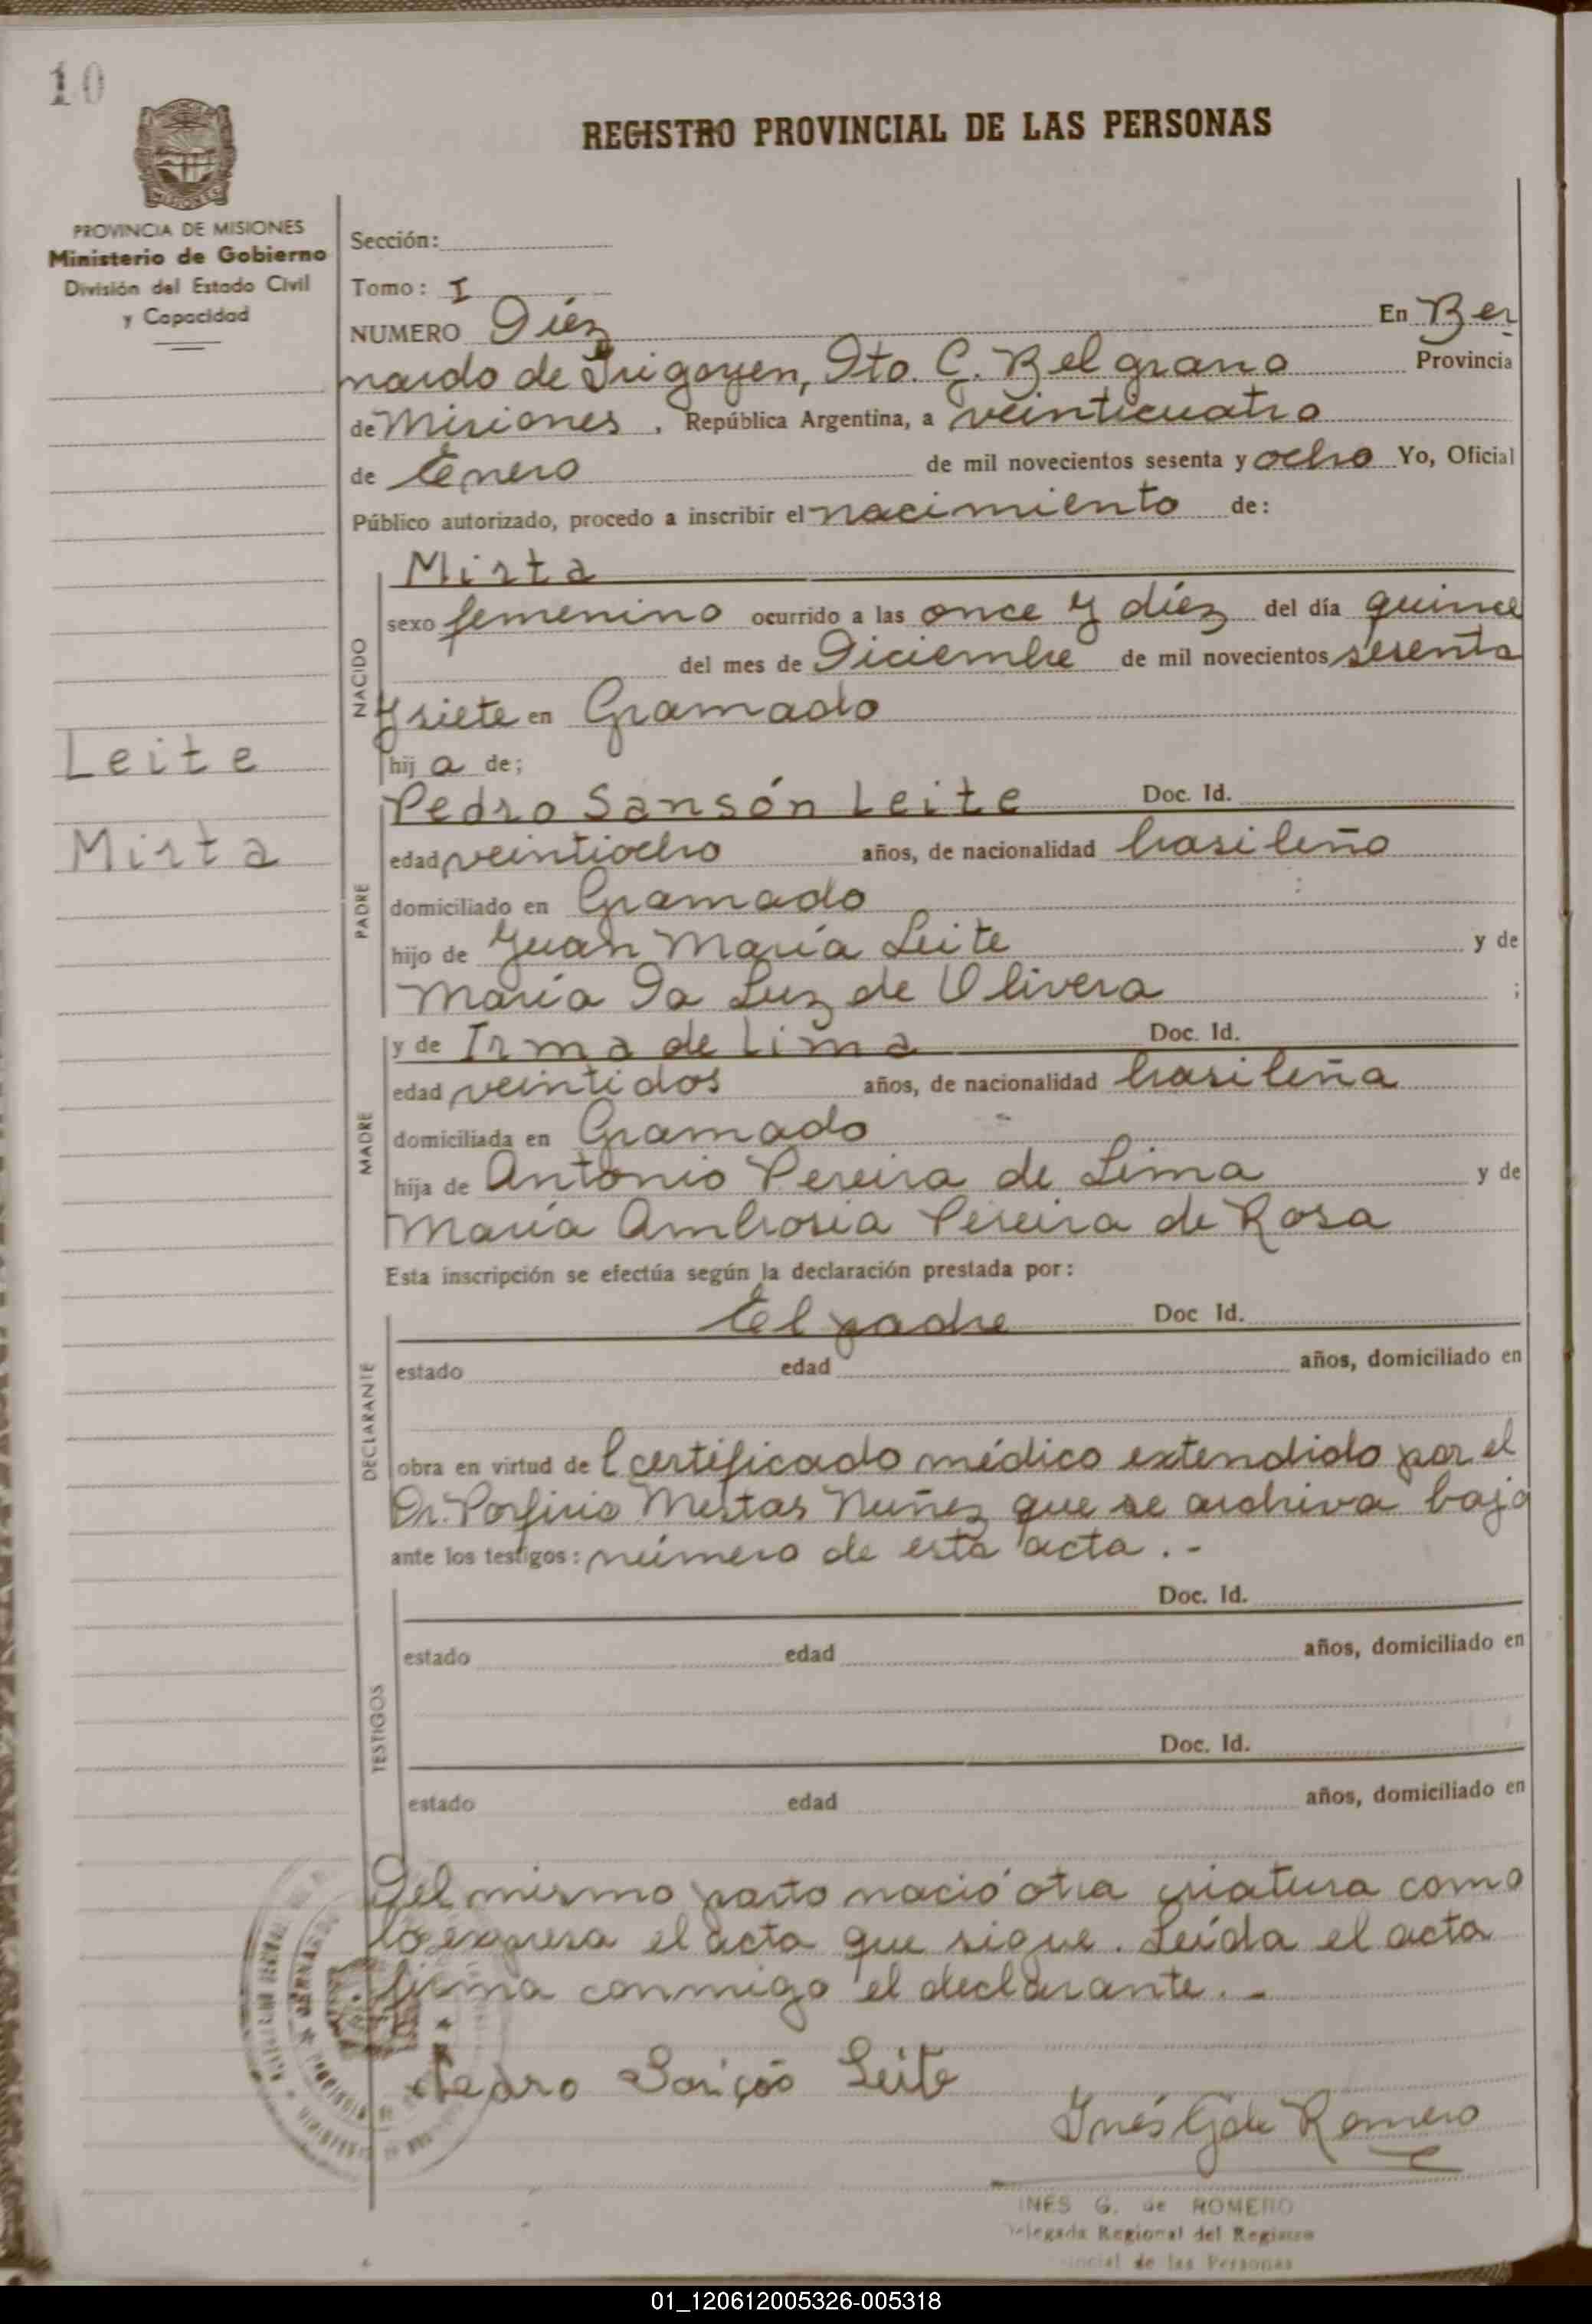 10
REGISTRO PROVINCIAL DE LAS PERSONAS
PROVINCIA DE MISIONES
Ministerio de Gobierno
División del Estado Civil
y Capacidad
Sección:
Tomo: I
NUMERO Diéz En Ber
nardo de Irigoyen, Dto. G. Belgrano Provincia
de Misiones, República Argentina, a veinticuatro
de Enero de mil novecientos sesenta y ocho Yo, Oficial
Público autorizado, procedo a inscribir el nacimiento de:
Leite
Mirta
NACIDO
Mirta
sexo femenino ocurrido a las once y diéz del día quince
del mes de Diciembre de mil novecientos sesenta
y siete en Gramado
hij a de;
PADRE
Pedro Sansón Leite Doc. Id.
edad veintiocho años, de nacionalidad brasileño
domiciliado en Gramado
hijo de Juan María Leite y de
María Da Luz de Olivera ;
MADRE
y de Irma de Lima Doc. Id.
edad veintidos años, de nacionalidad brasileña
domiciliada en Gramado
hija de Antonio Pereira de Lima y de
María Ambrosia Pereira de Rosa
Esta inscripción se efectúa según la declaración prestada por:
DECLARANTE
El padre Doc Id.
estado edad años, domiciliado en
obra en virtud de l certificado médico extendido por el
Dr. Porfirio Mestas Nuñez que se archiva bajo
ante los testigos: número de esta acta.-
TESTIGOS
Doc. Id.
estado edad años, domiciliado en
Doc. Id.
estado edad años, domiciliado en
Del mismo parto nació otra criatura como
lo expresa el acta que sigue. Leída el acta
firma conmigo el declarante.-
Pedro Leite
Inés G de Romero
INES G. de ROMERO
Delegada Regional del Registro
de las Personas
01_120612005326-005318